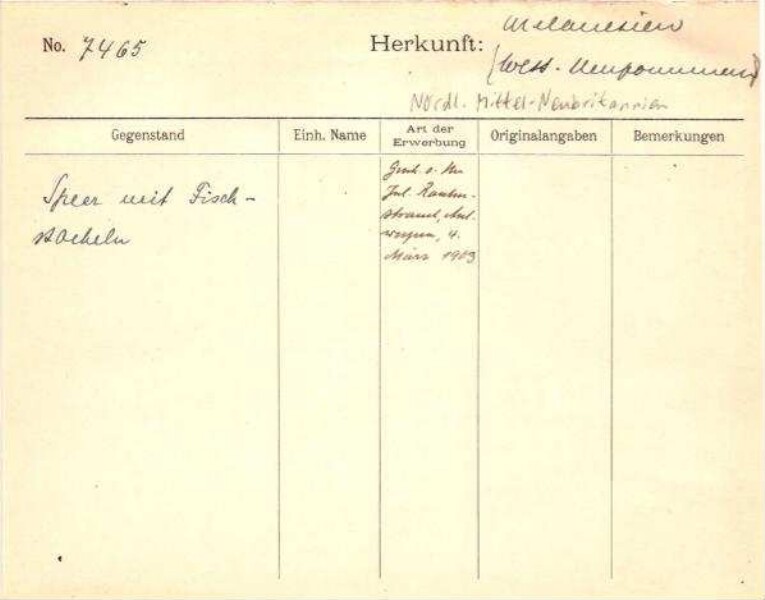 No. 7465
Herkunft: Melanesien
(West-Neupommern)
Nördl. Mittel-Neubritannien
Gegenstand Einh. Name Art der Erwerbung Originalangaben Bemerkungen
Speer mit Fisch-
stacheln
Jul. Rauten-
strauch, Ant-
werpen, 4.
März 1903